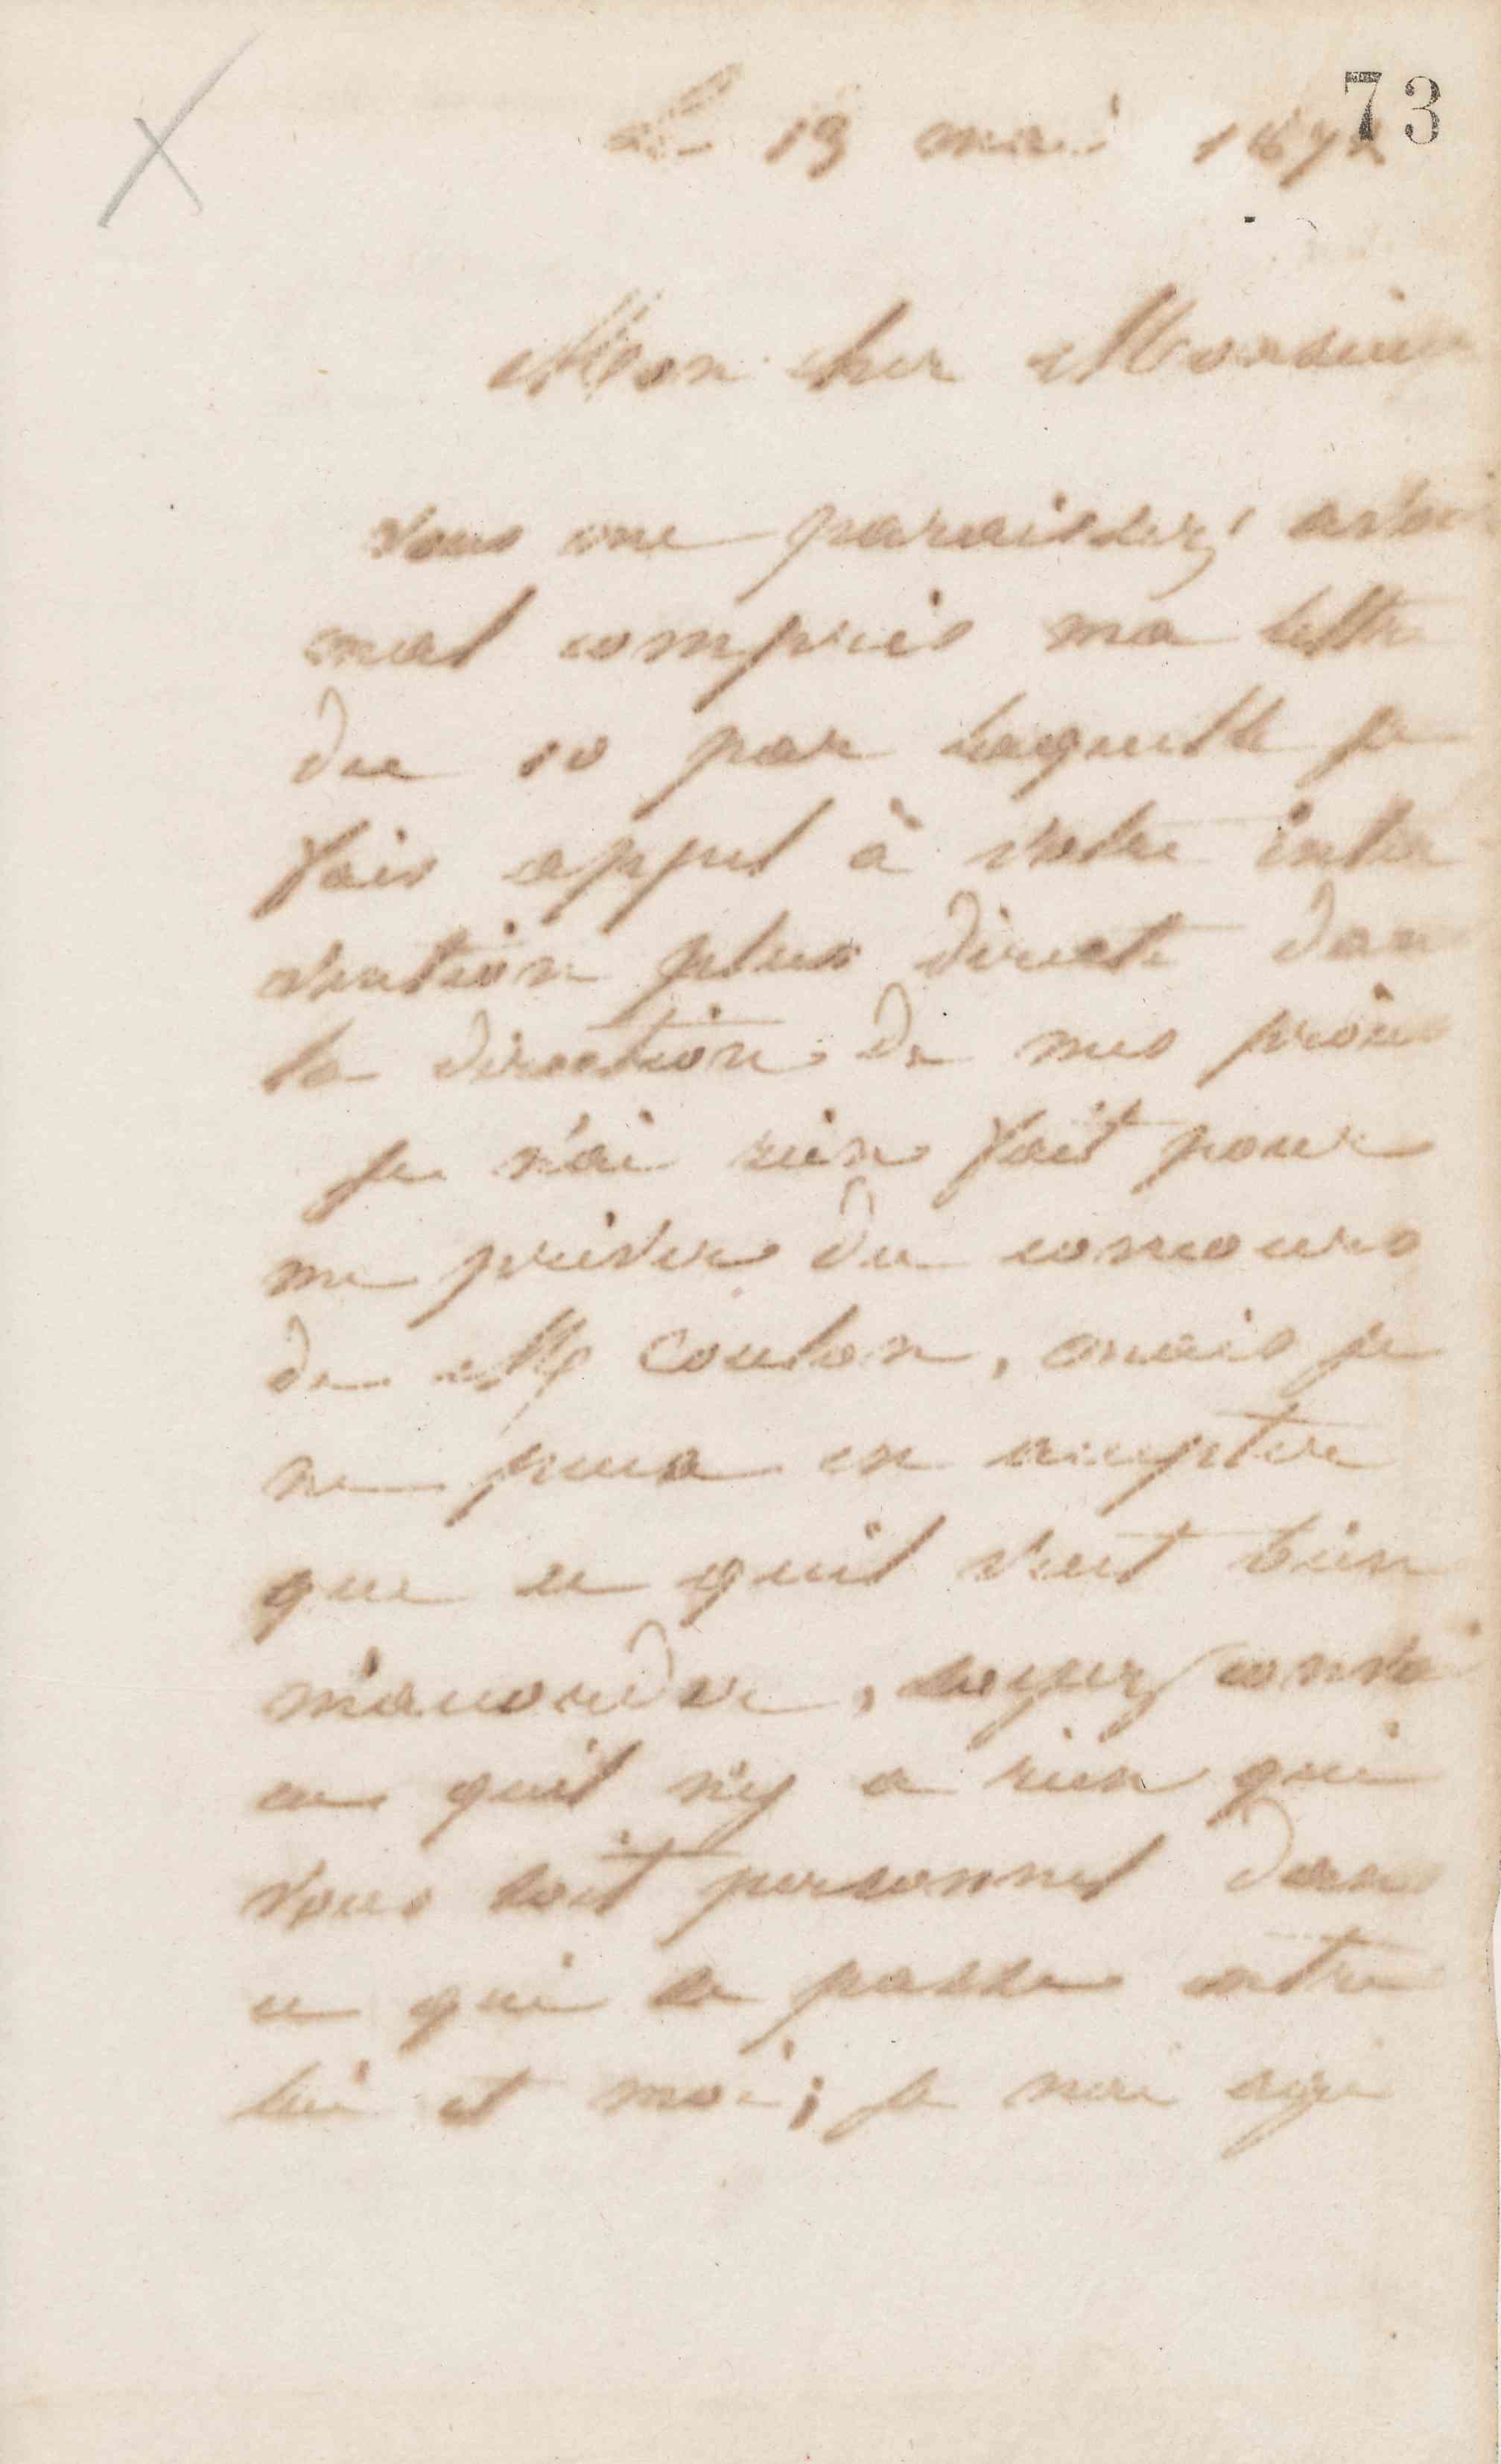 73
Le 13 mai 1872
Mon cher Monsieur
vous me paraissez avoir
mal compris ma lettre
du 10 par laquelle je
fais appel à votre inter
vention plus directe dans
la direction de mes procès
je n'ai rien fait pour
me priver du concours
de Me Coulon, mais je
ne peux en accepter
que ce qu'il veut bien
m'accorder, soyez convain
cu qu'il n'y a rien qui
vous soit personnel dans
ce qui se passe entre
lui et moi; je n'ai agi